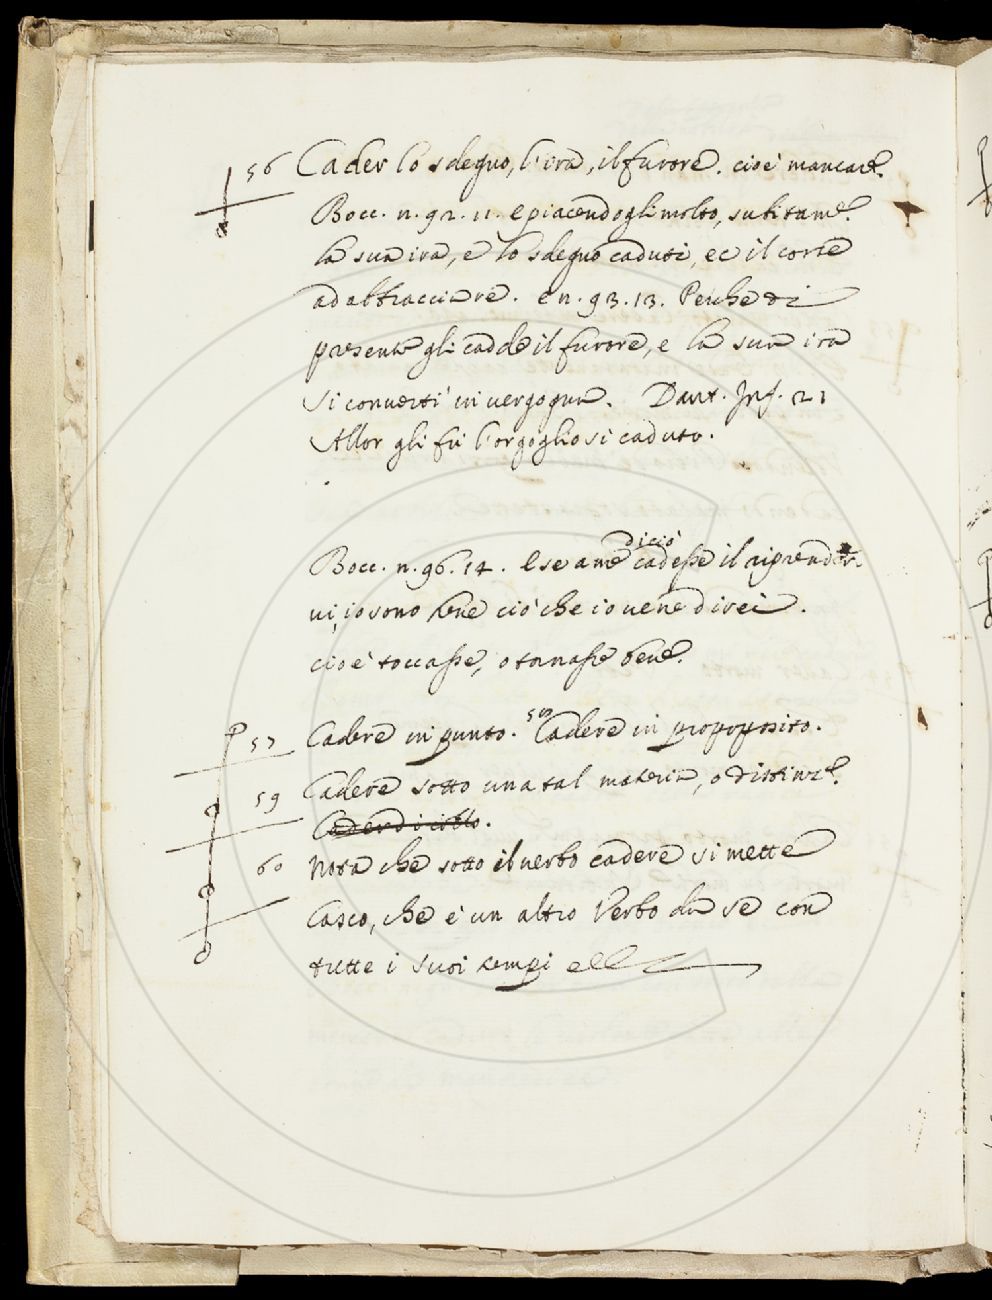 56 Cader lo sdegno, l'ira, il furore. cioè mancare.
Bocc. n. 92. 11. e piacendogli molto, subitame.
la sua ira, e lo sdegno caduti, ec il corse
ad abbracciare. e n. 93. 13. Perche di
presente gli cadde il furore, e la sua ira
si convertì in vergogna. Dant. Inf. 21
Allor gli fù l'orgoglio si caduto.
Bocc. n. 96. 14. E se a me di ciò cadesse il riprender
vi, io sono bene ciò che io vene direi.
cioè toccasse, o tornasse bene.
57 Cadere in punto. 58 Cadere in propoposito.
59 Cadere sotto una tal materia, o
Cader di collo.
60 Nota che sotto il verbo cadere si mette
Casco, che è un altro Verbo da se con
tutte i suoi tempi